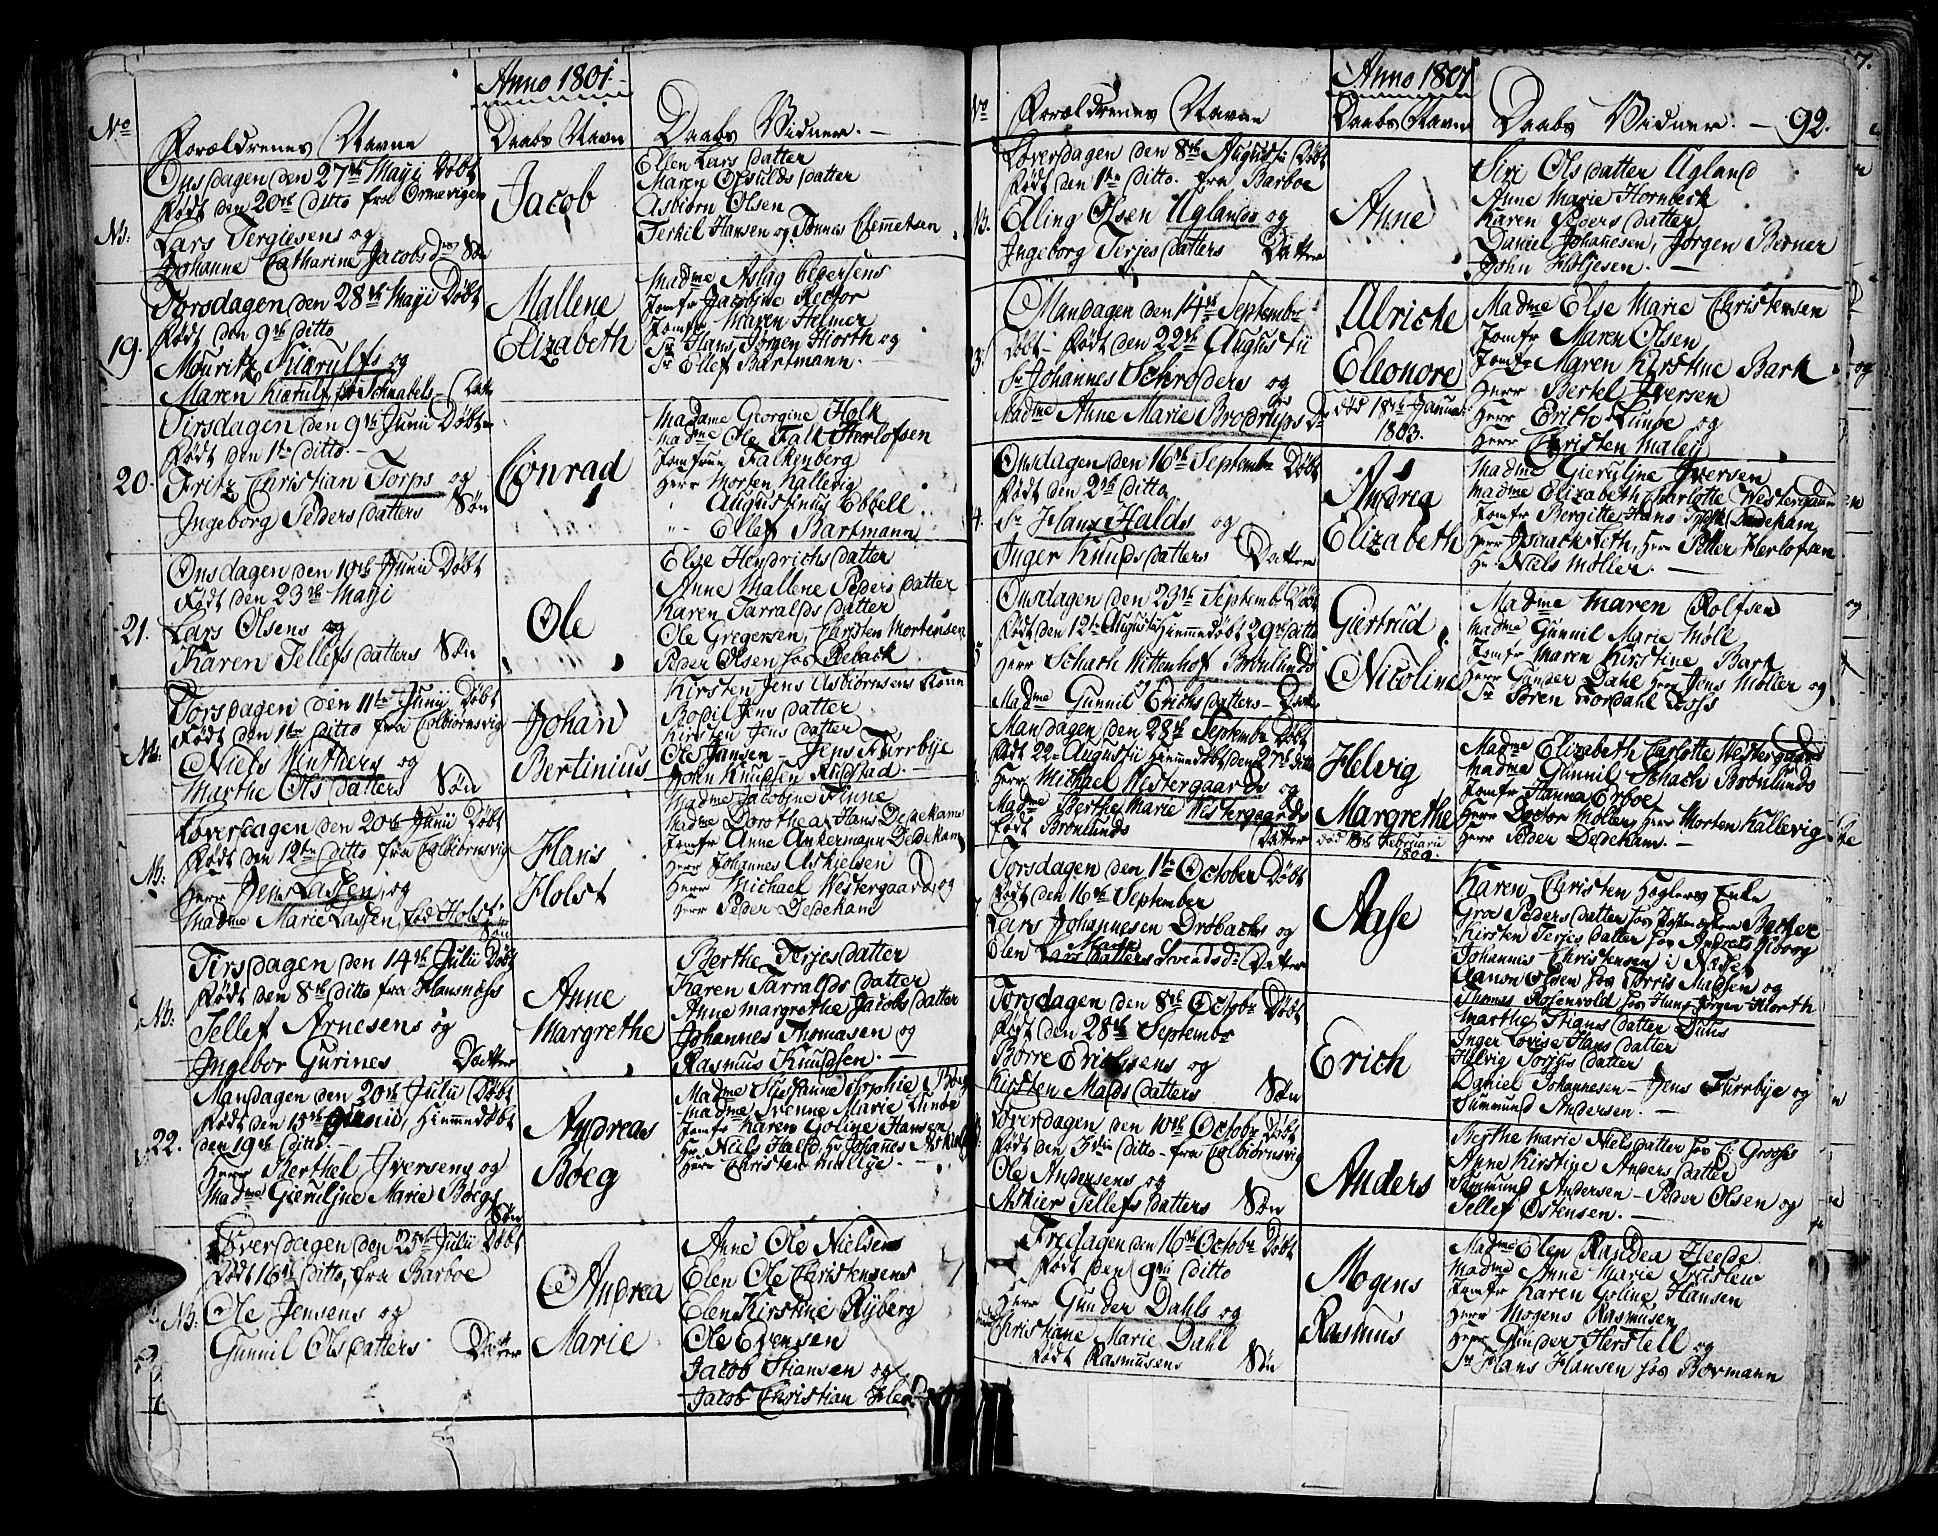 Anno 1801.
No
Forældrenes Navne
Daabs Navn
Daabs Vidner.
Onsdagen den 27de Mayi Døbt
Født den 20de ditto fra Ormevigen
NB.
Lars Tergiesens og
Johanne Catharine Jacobsdr Søn
Jacob
Ellen Lars datter
Maren Osvulds datter
Asbiørn Olsen
Terkil Hansen og Tønnes Clemetsen
Torsdagen den 28de Mayi Døbt
Født den 9de ditto
19.
Mouritz Kiærulfs og
Maren Kiærulf, før Schnabels, Datter
Mallene
Elizabeth
Madme Aslag Pedersens
Jomfr Jacobine Rector
Jomfr Maren Helmer
Sr Hans Jørgen Hiorth og
Sr Ellef Bartmann.
Tirsdagen den 9de Junii Døbt
Født den 1te ditto.
20.
Fritz Christian Torps og
Ingeborg Peders datters Søn
Conrad
Madame Georgine Holk
Madme Ole Falk Herlofsen
Jomfrue Falkenberg
Herr Morten Kallevig
" Augustinus Ebbell
" Ellef Bartmann
Onsdagen den 10de Junii Døbt
Født den 23de Mayi
21.
Lars Olsens og
Karen Tellefs datters Søn
Ole
Else Hendrichs datter
Anne Mallene Peders datter
Karen Tarralds datter
Ole Gregersen, Carsten Mortensen
Peder Olsen hos Reback
Torsdagen den 11te Junii Døbt
Født den 1te ditto fra Colbiørnsvig
NB.
Niels Winthers og
Marthe Ols datters Søn
Johan
Bertinius
Kirsten Jens Asbiørnsens Kone
Bodil Jens datter
Kirsten Jens datter
Ole Jansen – Jens Furrbye
John Knudsen Rustad.
Løverdagen den 20de Junii Døbt
Født den 12te ditto fra Colbiørnsvig
NB.
Herr Jens Lassen, og
Madme Marie Lassen, fød Holst
Søn
Hans
Holst
Madme Jacobine Finne
Madme Dorothea Hans Dedekam
Jomfr Anne Ankermann Dedekam
Herr Johannes Askielsen
Herr Michael Westergaard, og
Herr Peder Dedekam
Tirsdagen den 14de Julii Døbt
Født den 8de ditto fra Hansnæs
NB.
Tellef Arnesens og
Ingebor Gurines Datter
Anne
Margrethe
Berthe Terjes datter
Karen Tarralds datter
Anne Margrethe Jacobs datter
Johannes Thomasen og
Rasmus Knudsen.
Mandagen den 20de Julii Døbt
Født den 15de Junii, Hiemmedøbt
22. den 19de ditto.
Herr Berthel Iversens og
Madme Gieruline Marie Boegs
Søn
Andreas
Boeg
Madme Susanne Sophie Boeg
Madme Svenne Marie Lunde
Jomfr Karen Goline Hansen
Hr Niels Hald, Hr Johannes Askiels
Herr Christen Mallye.
Løverdagen den 25de Julii Døbt
Født 16de ditto, fra Barboe
NB.
Ole Jensens og
Gunnil Ols datters Datter
Andrea
Marie
Anne Ole Nielsens
Elen Ole Christensens
Elen Kirstine Ryberg
Ole Evensen
Jacob Stiansen og
Jacob Christian
Anno 1801
No
Forældrenes Navne
Daabs Navne
Daabs Vidner. – 92.
Løverdagen den 8de Augustii Døbt
Født den 1te ditto. fra Barboe
Elling Olsen Uglands og
Ingeborg Terjes datters Datter
Anne
Siri Ols datter Ugland
Anne Marie Hornbeck
Karen Peders datter
Daniel Johanesen, Jørgen Berner
John Holjesen.
Mandagen den 14de Septembr
Døbt – Født den 22de Augustii
Sr Johannes Schrøders og
Madme Anne Marie Brodtrups Dr
Ulriche
Eleonore
død 18de Januar
1803.
Madme Else Marie Christensen
Jomfr Maren Olsen
Jomfr Maren Kirstine Bark
Herr Bertel Iversen
Herr Erich Lunde og
Herr Christen Maley
Onsdagen den 16de Septembr Døbt
Født den 2de ditto
4.
Sr Hans Halds og
Inger Knuds datters Datter
Andrea
Elizabeth
Madme Gieruline Iversen
Madme Elizabeth Charlotte Westergaard
Jomfr Bergitte Hans Dedekam
Herr Isaachsen, Herr Petter Herlofsen
Hr Niels Møller.
Onsdagen den 23de Septembr Døbt
Født den 12te Augustii Hiemmedøbt 29de ditto
Herr Schach Wittenhof Brønlunds
og
Madme Gunnil Erichs datters – Datter
Giertrud
Nicoline
Madme Maren Rolfsen
Madme Gunnil Marie Møll
Jomfr Maren Kirstine Bark
Herr Gunder Dahl Herr Jens Møller og
Sr Søren Tordahl
Mandagen den 28de Septembr Døbt
Født 22 Augustii Hiemmedøbt den 27de ditto
Herr Michael Westergaards og
Madme Berthe Marie Westergaards
født Brønlunds Datter
Helvig
Margrethe
død 13de Februarii
1802.
Madme Elizabeth Carlotte Westergaard
Madme Gunnil Schach Brønlunds
Jomfr Hanna Erboe
Herr Doctor Møller, Herr Morten Kallevig
Herr Peder Dedekam.
Torsdagen den 1te October Døbt
Født den 16de September
Lars Johannesen Drøbachs og
Marie
Elen Lars datters Svends Dr Datter
Aase
Karen Christen Enke
Groe Peders datter hos Barker
Kirsten Terjes datter hos Andreas Kborg
Johannes Christensen i Næset
Aanon Olsen hos Torris Madsen og
Thomas Rosenvold hos Hans Jørgen Hiorth
Torsdagen den 8de Octobr Døbt
Født den 28de Septembr
Børre Erichsens og
Kirsten Mads datters Søn
Erich
Marthe Stians datter Duus
Inger Lovise Hans datter
Helvig Torjus datter
Daniel Johannesen – Jens Furrbye og
Summund Andersen.
Løverdagen den 10de Octobr Døbt
Født den 3die ditto – fra Colbiørnsvig
Ole Andersens og
Askier Tellefs datters Søn
Anders
Berthe Marie Niels datter hos
Anne Kirstine Anders datter
Summund Andersen – Peder Olsen og
Tellef Østensen.
Fredagen den 16de Octobr Døbt
Født den 9de ditto
Herr Gunder Dahls og
Christiane Marie Dahl
Født Rasmusens Søn
Mogens
Rasmus
Madme Elen Randea
Madme Anne Marie
Jomfr Karen Goline Hansen
Herr Mogens Rasmusen
Herr Gunder Herstell og
Sr Hans Hansen hos Bormann